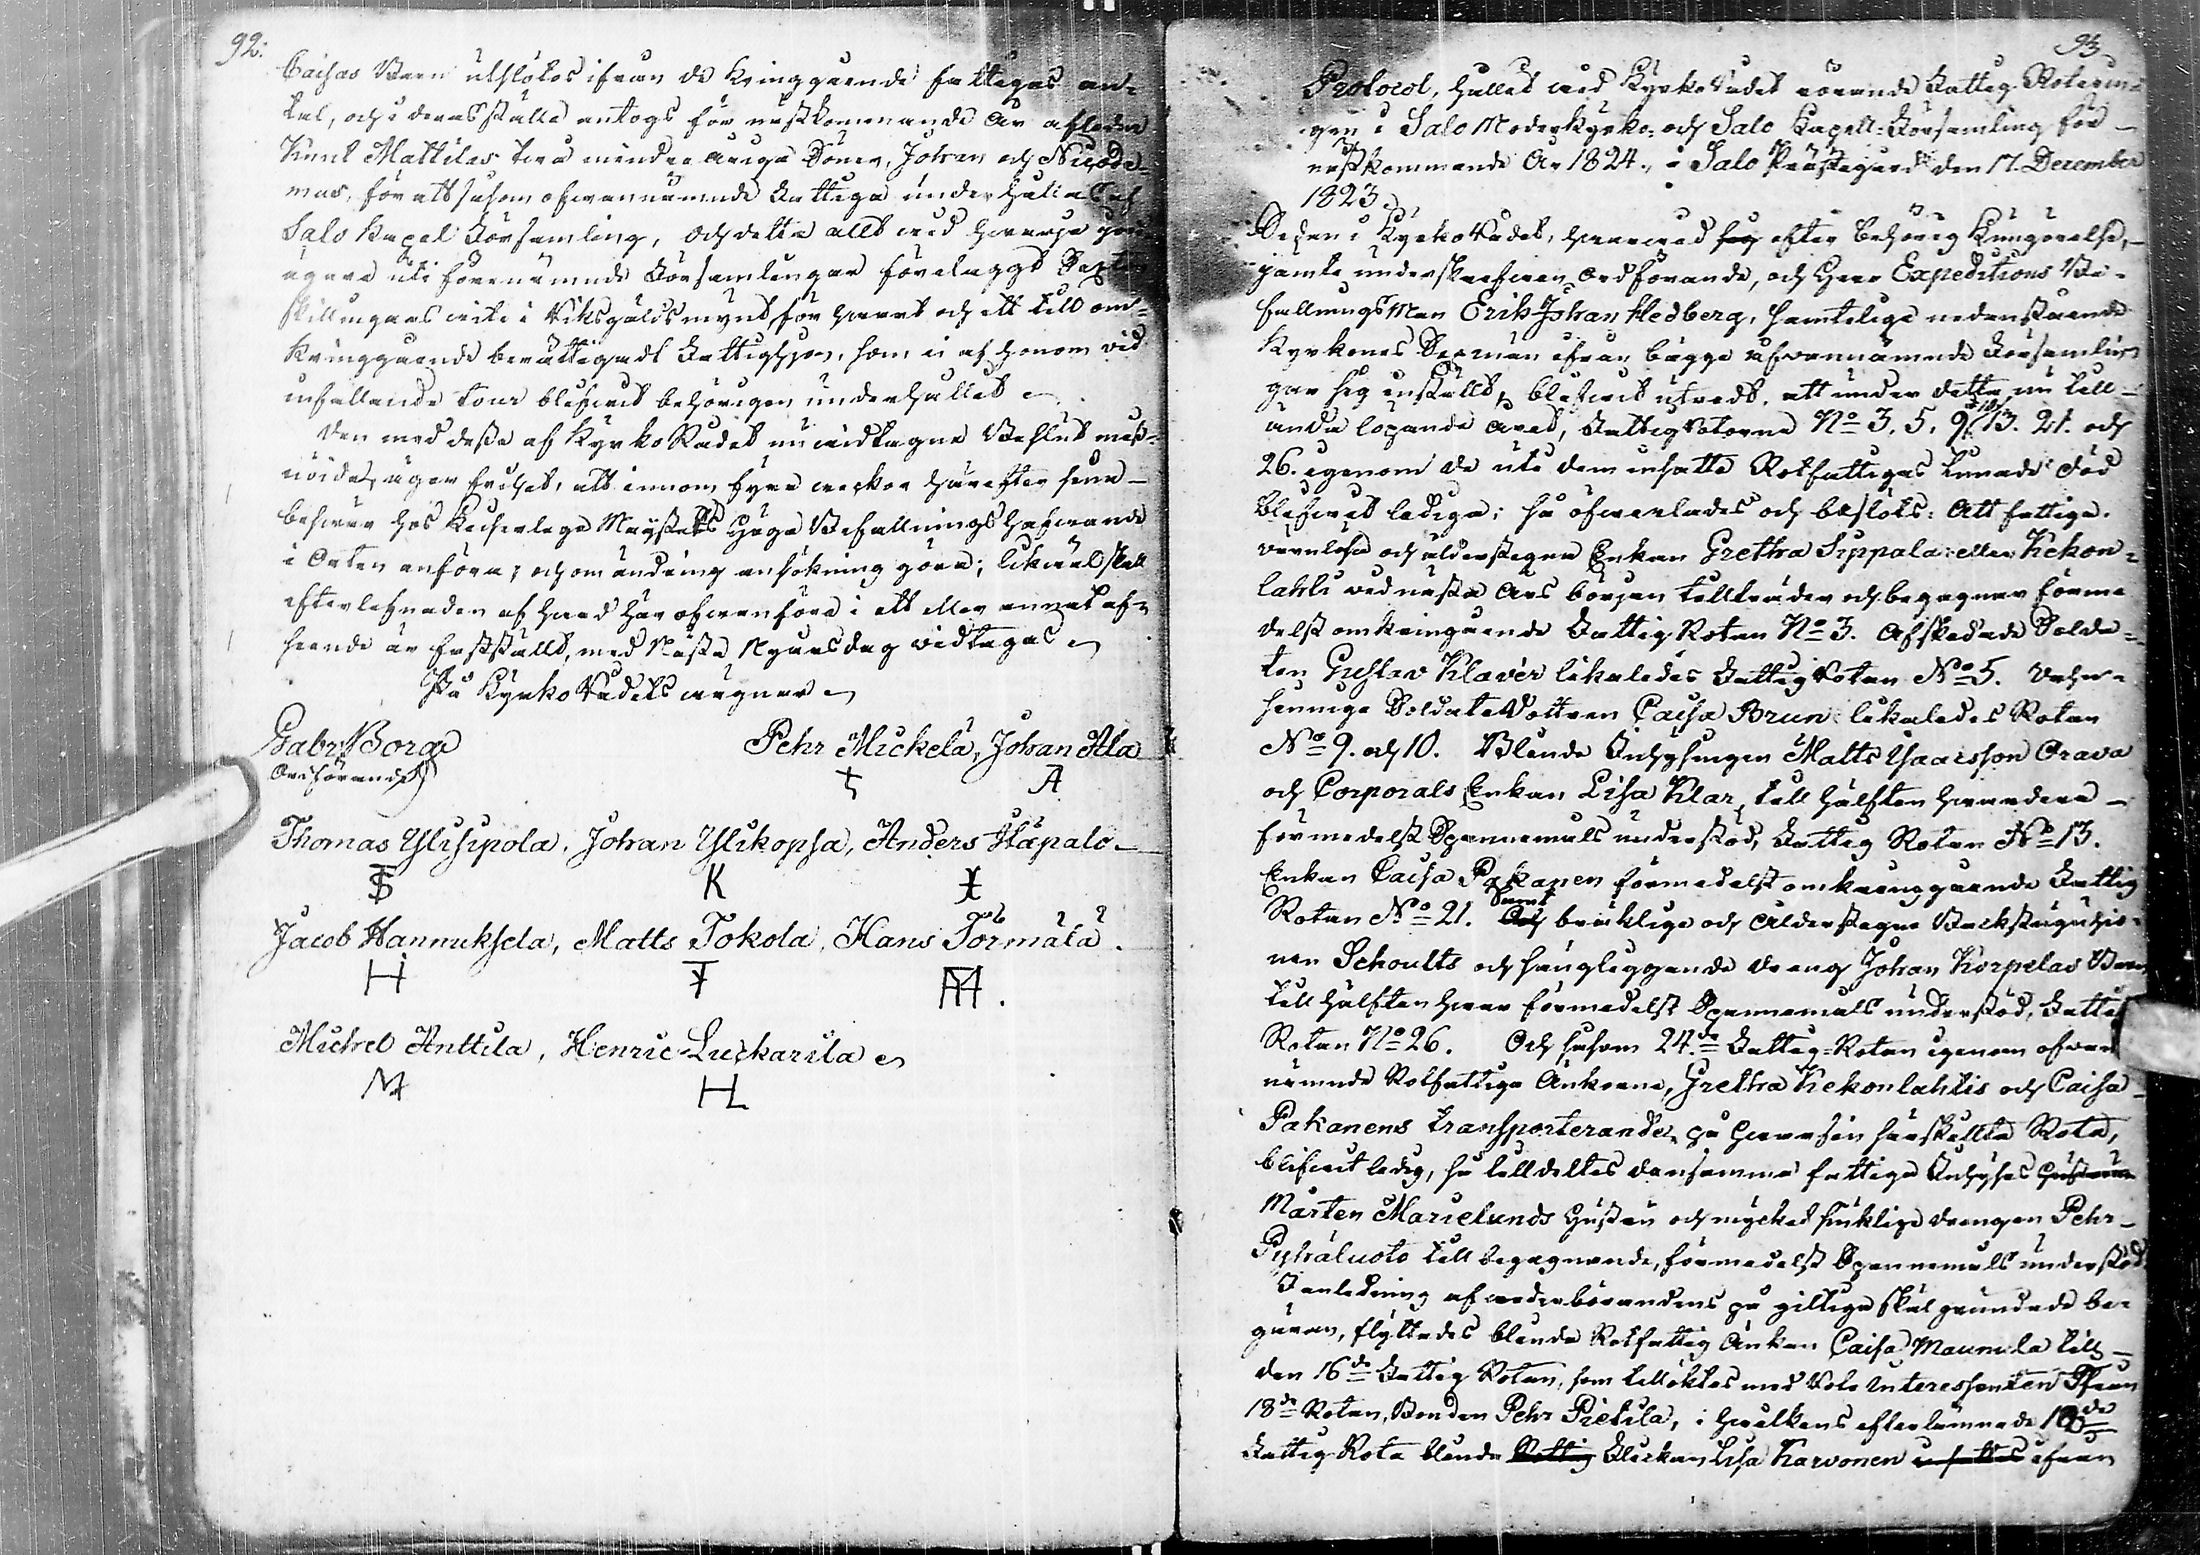 92:
Caisas Barn uteslötos ifrån de kringgående fattigas an-
tal, och i deras ställe antogs för nästkommande År afledne
Knut Mattilas twå mindre åriga Söner, Johan och Nicode-
mus, för att såsom ofwannämnde Fattige underhållas af
Salo Kapel Församling, och detta allt wid hwarje
ägare uti förenämnde Församlingar förelaggdt Sexton
skillingars wite i Riksgälds mynt, för hwart och ett till om-
kringgående berättigadt Fattighjon, som ej af honom wid
infallande tour blifwit behörigen underhållet
Den med desse af KyrkoRådet nu widtagne Beslut miss-
nöjde, äger frihet, att innom fyra weckor härefter sina
beswär hos Kejserlige Majestets Höga Befallningshafwande
i Orten anföra, och om ändring ansökning göra; likwäl skall
efterlefnaden af hwad här ofwanföre i ett eller annat af-
seende är fastställt, med Nästa Nyårsdag widtagas
På KyrkoRådets wägnar
Gabr. Borg Pehr Mickelä, Johan Ala
Ordförande A
Thomas Ylisipola, Johan Ylikopsa, Anders Haapalo
K
Jacob Hannuksela, Matts Tokola, Hans Törmälä.
H T
Michel Anttila, Henric Luckarila
M H
93
Protocol, hållet wid KyrkoRådet rörande Fattig-Roterin-
gen i Salo Moderkyrko- och Salo Kapell-Församling för
nästkommande År 1824, i Salo Prästegård den 17. December
1823.
Sedan i KyrkoRådet, hwarwid sig efter behörig Kungörelse,
jämte underskrefwen Ordförande, och Herr Expeditions Be-
fallningsMan Erik Johan Hedberg, samtelige nedanstående
Kyrkones Sexmän ifrån bägge ofwannämnde Församlin-
gar sig inställt, blifwit utredt, att under detta nu till
ända löpande året, FattigRoterne No 3. 5. 9. 10. 13. 21. och
26. igenom de uti dem insatte Rotfattigas timade död
blifwit lediga; så öfwerlades och beslöts: Att fattige
wärnlösa och ålderstegna Enkan Gretha Sippala eller Kekon-
lahti wid nästa Års början tillträder och begagnar förme-
delst omkringgående FattigRotan No 3. Afskedade Solda-
ten Gustav Klavér likaledes FattigRotan No 5.
sinniga SoldateDottren Caisa Brun likaledes Rotan
No 9. och 10. Blinde Inhysingen Matts Isacsson Orava
och Corporals Enkan Lisa Klar, till hälften hwardera
förmedelst Spannemåls understöd, Fattig Rotan No 13.
Enkan Caisa Pakanen förmedelst omkringgående Fattig
Rotan No 21. Samt bräcklige och ålderstegne Backstuguhjo-
nen Schoults och sängliggande dreng Johan Korpelas Barn
till hälften hwar förmedelst Spannemåls understöd, Fattig
Rotan No 26. Och såsom 24.de Fattig-Rotan igenom ofwan
nämnde Rotfattige Änkorne, Gretha Kekonlahtis och Caisa
Pakanens transporterande, på hwar sin särskillta Rota,
blifwit ledig, så tilldeltes densamma fattige Inhyses
Mårten Marielunds Hustru och mycket sjuklige drengen Pehr
Pyhäluoto till begagnande, förmedelst Spannemåls understöd.
I anledning af wederbörandens på giltiga skäl grundade be-
gäran, flyttades blinde Rotfattig Änkan Caisa Maunula till
den 16de Fattig Rotan, som tilläktes med Rote Interessenten ifrån
18de Rotan, Bonden Pehr Pietila, i hwilkens efterlämnade 18de
Fattig Rota blinde Flickan Lisa Karvonen insattes ifrån